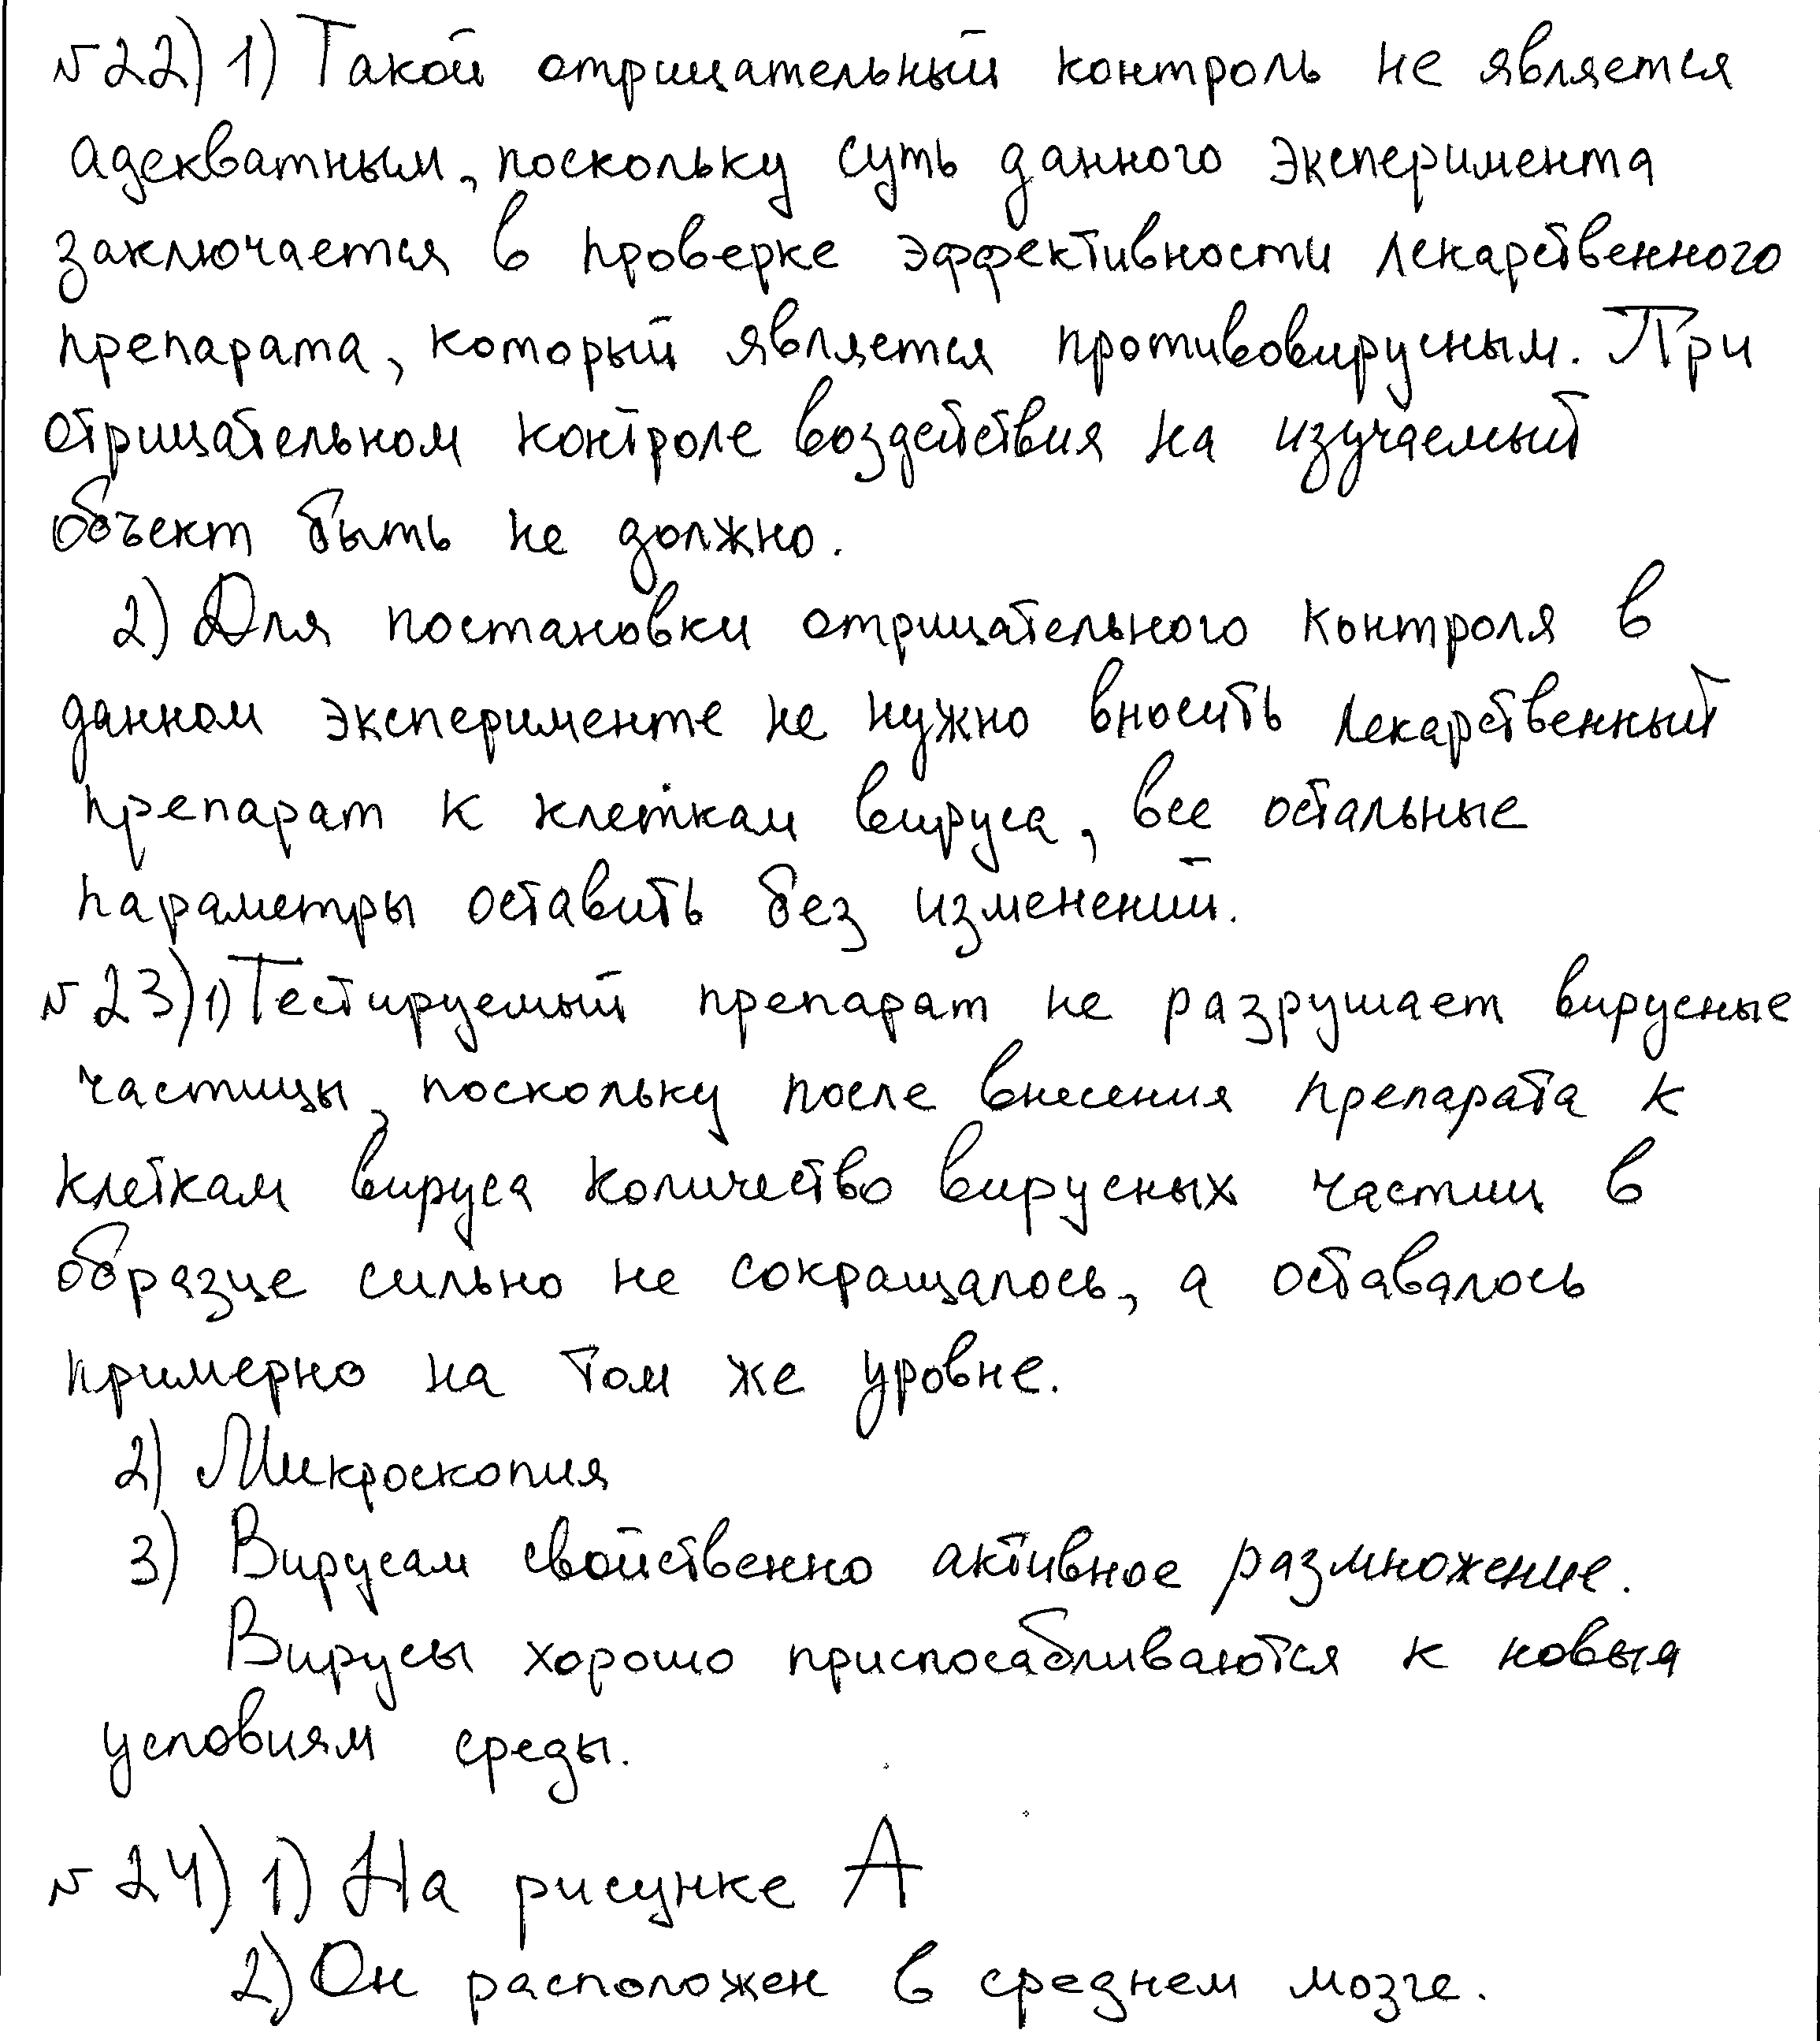 №22) 1) Такой отрицательный контроль не является
адекватным, поскольку суть данного эксперимента
заключается в проверке эффективности лекарственного
препарата, который является противовирусным. При
отрицательном контроле воздействия на изучаемый
объект быть не должно.
2) Для постановки отрицательного контроля в
данном эксперименте не нужно вносить лекарственный
препарат к клеткам вируса, все остальные
параметры оставить без изменений.
№23) 1) Тестируемый препарат не разрушает вирусные
частицы, поскольку после внесения препарата к
клеткам вируса количество вирусных частиц в
образце сильно не сокращалось, а оставалось
примерно на том же уровне.
2) Микроскопия
3) Вирусам свойственно активное размножение.
Вирусы хорошо приспосабливаются к новыя
условиям среды.
№24) 1) На рисунке А
2) Он расположен в среднем мозге.